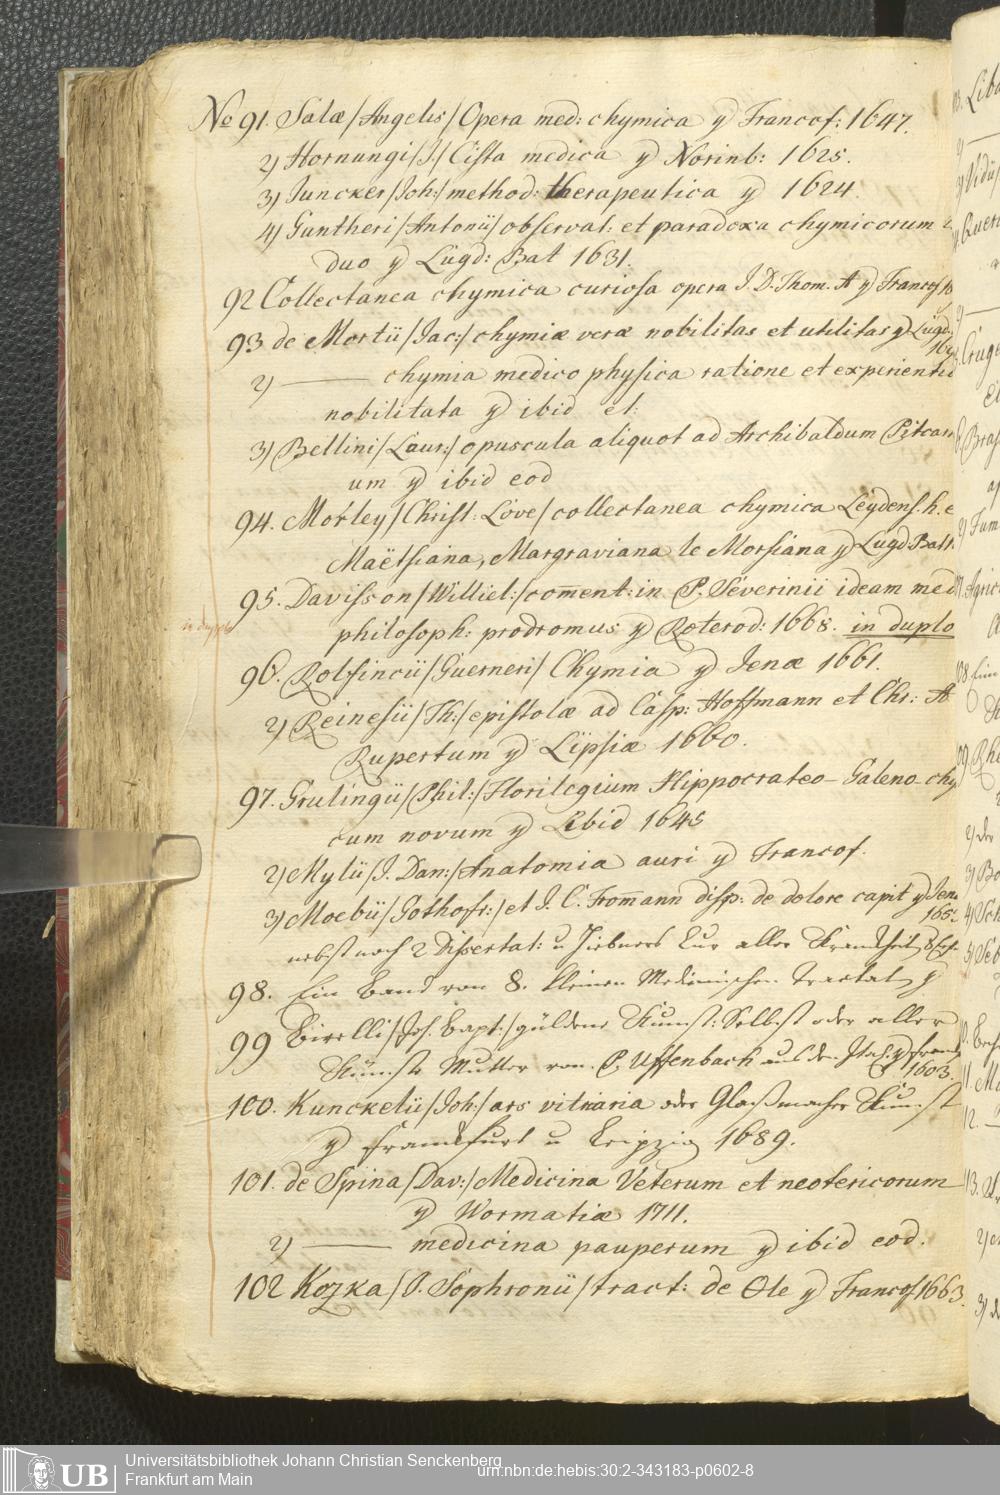 No 91. Salæ /Angelis/ Opera med: chymica ꝟ Francof: 1647.
2) Hornungi /J./ Cista medica ꝟ Norinb: 1625.
3) Juncker /Joh:/ method: therapeutica ꝟ 1624
4) Guntheri /Antonii/ observat: et paradoxa chymicorum
duo ꝟ Lugd: Bat 1631.
92 Collectanea chymica curiosa opera J. D. Thom. A ꝟ Francof
93 de Mortii /Jac:/ chymiæ veræ nobilitas et utilitas ꝟ Lugd.
2) ——— chymia medico physica ratione et experientia
nobilitata ꝟ ibid et:
3) Bellini /Laur:/ opuscula aliquot ad Archibaldum Pitcarn
um ꝟ ibid eod
94. Morley /Christ: Löve/ collectanea chymica Leydens. h. e
Maëtsiana, Margraviana le Morsiana ꝟ Lugd Bat
95. Davisson /Williel:/ com̄ent: in P. Severinii ideam med
in duplo
philosoph: prodromus ꝟ Roterod: 1668. in duplo
96. Rolfincii /Guerneri/ Chymia ꝟ Jenæ 1661.
2) Reinesii /Th:/ epistolæ ad Casp: Hoffmann et Chr: A
Rupertum ꝟ Lipsiæ 1660.
97. Grulingii /Phil:/ Florilegium Hippocrateo-Galeno-chy
cum novum ꝟ Libid 1645
2) Mylii /J. Dan:/ Anatomia auri ꝟ Francof.
3) Moebii /Gothofr:/ et J. C. From̄ann disp: de dolore capit ꝟ Jen
165
nebst noch 2 Dissertat: u Hiebners Cur aller Krankheit
98. Ein Band von 8. kleinen Medicinischen Tractat ꝟ
99 Birelli /Joh. Bapt:/ güldene Kunst: Selbst oder aller
Künste Mutter von P. Uffenbach aus dem Ital. ꝟ Franc
1603.
100. Kunckelii /Joh:/ ars vitriaria oder Glaßmacher Kunst
ꝟ Frankfurt u Leipzig 1689.
101. de Spina /Dav:/ Medicina Veterum et neotericorum
ꝟ Wormatiæ 1711.
2) ——— medicina pauperum ꝟ ibid eod.
102 Kozka /J. Sophronii/ tract: de Ole ꝟ Francof 1663.
UB Universitätsbibliothek Johann Christian Senckenberg
Frankfurt am Main
urn:nbn:de:hebis:30:2-343183-p0602-8